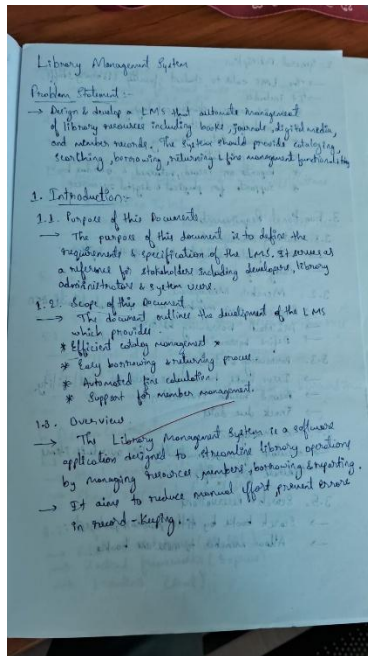 Library Management System
Problem Statement :-
→ Design & develop a LMS that automate management
of library resources including books, journals, digital media,
and member records. The system should provide cataloging,
searching, borrowing, returning & fine management functionalities
1. Introduction:-
1.1. Purpose of this Documents.
→ The purpose of this document is to define the
requirements & specification of the LMS. It serves as
a reference for stakeholders including developers, library
administrators & system users.
1.2. Scope of this Document
→ The document outlines the development of the LMS
which provides.
* Efficient catalog management *
* Easy borrowing & returning process.
* Automated fine calculation.
* Support for member management.
1.3. Overview.
→ The Library Management System is a software
application designed to streamline library operations
by managing resources, members, borrowing & reporting.
→ It aims to reduce manual effort, prevent errors
in record-keeping.